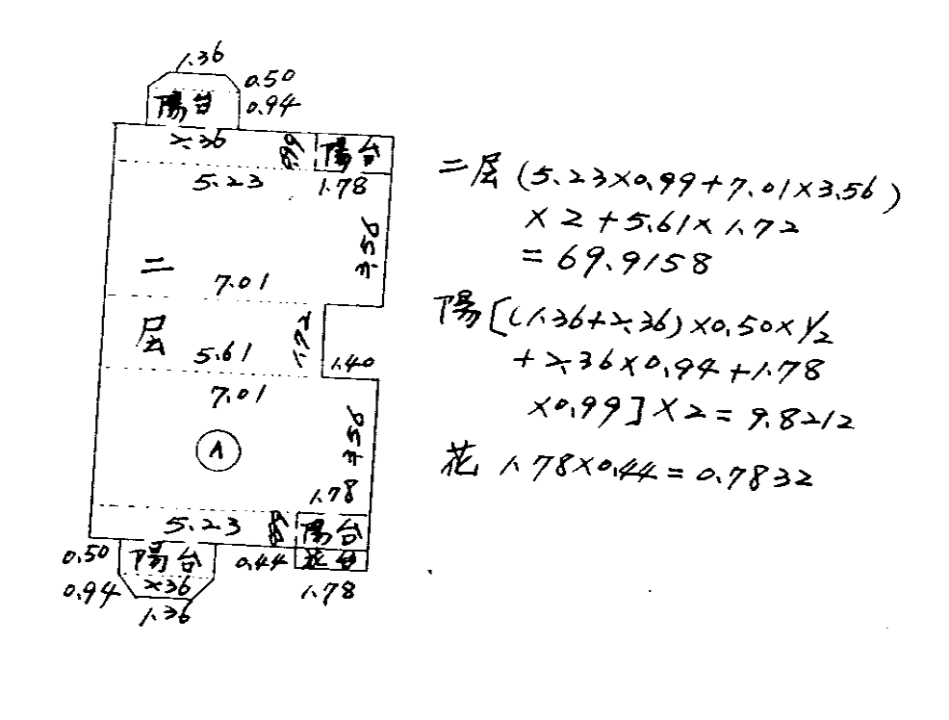 1.36
0.50
陽台
0.94
2.36
0.99
陽台
5.23
1.78
3.56
二
7.01
1.72
层
5.61
1.40
7.01
A
3.56
1.78
5.23
0.99
陽台
0.50
陽台
0.44
花台
0.94
2.36
1.78
1.36
二层(5.23×0.99+7.01×3.56)
×2+5.61×1.72
=69.9158
陽[(1.36+2.36)×0.50×1/2
+2.36×0.94+1.78
×0.99]×2=9.8212
花 1.78×0.44=0.7832